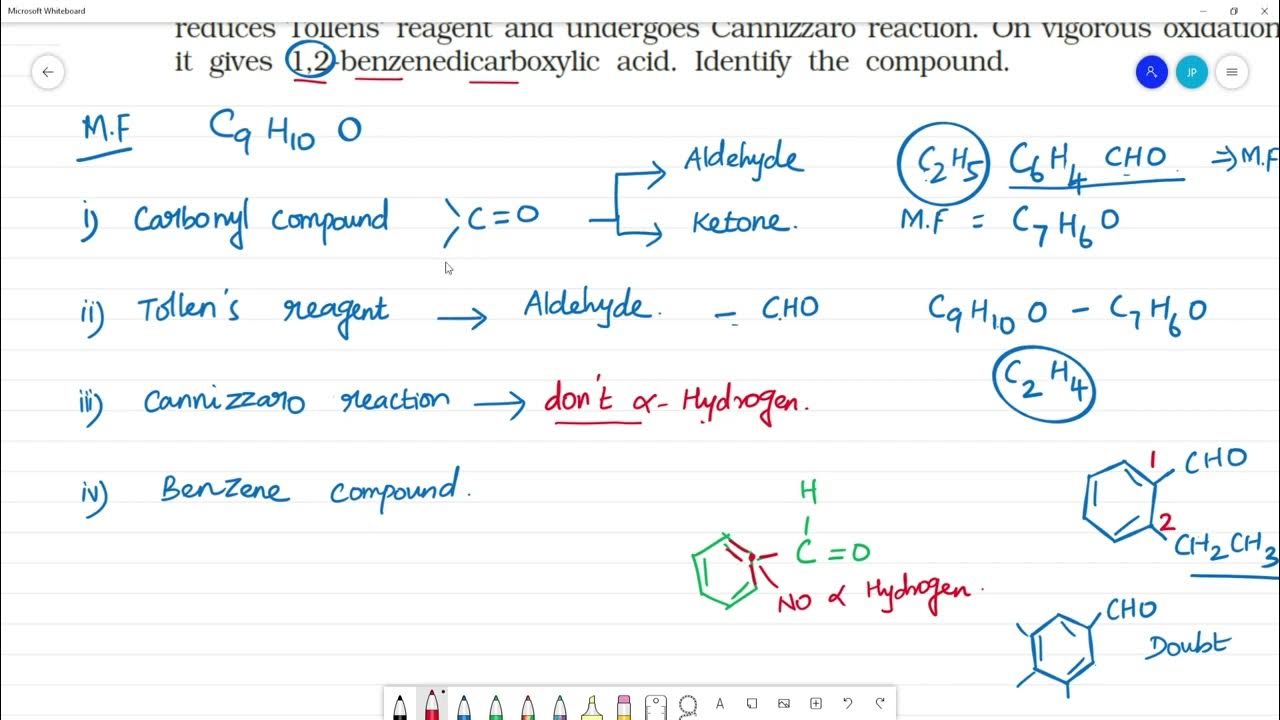 Microsoft Whiteboard
reduces Tollens' reagent and undergoes Cannizzaro reaction. On vigorous oxidation
it gives 1,2-benzenedicarboxylic acid. Identify the compound.
JP
M.F C9 H10 O
Aldehyde
C2H5 C6H4 CHO ⇒ M.F
i) Carbonyl compound >C=O
Ketone.
M.F = C7H6O
ii) Tollen's reagent → Aldehyde. - CHO
C9H10O - C7H6O
C2H4
iii) Cannizzaro reaction → don't α- Hydrogen.
iv) Benzene compound.
1 CHO
2 CH2CH3
H
C=O
NO α Hydrogen.
CHO
Doubt
A